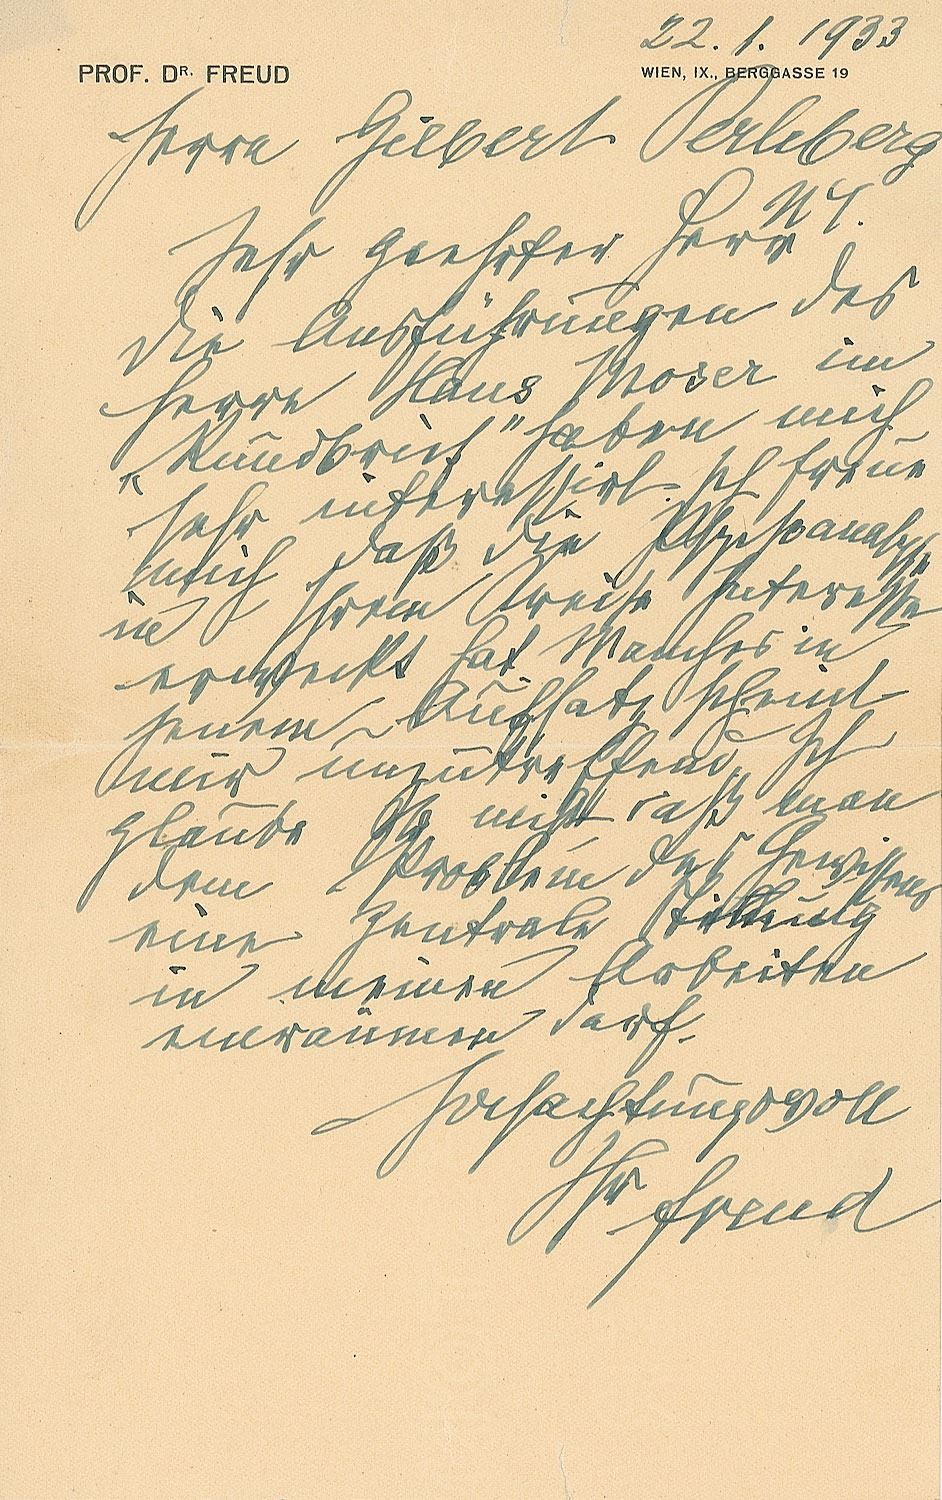 22.1.1933
PROF. DR. FREUD
WIEN, IX., BERGGASSE 19
Herrn Gilbert Perleberg
NY.
Sehr geehrter Herr
Die Ausführungen des
Herrn Hans Moser im
„Rundbrief" haben mich
sehr interessirt. Ich freue
mich daß die Psychoanalyse
in Ihrem Kreise Interesse
erweckt hat. Manches in
jenem Aufsatz scheint
mir unzutreffend. Ich
glaube nicht daß man
dem Problem des Gewissens
eine zentrale Stellung
in meinen Arbeiten
einräumen darf.
Hochachtungsvoll
Ihr Freud